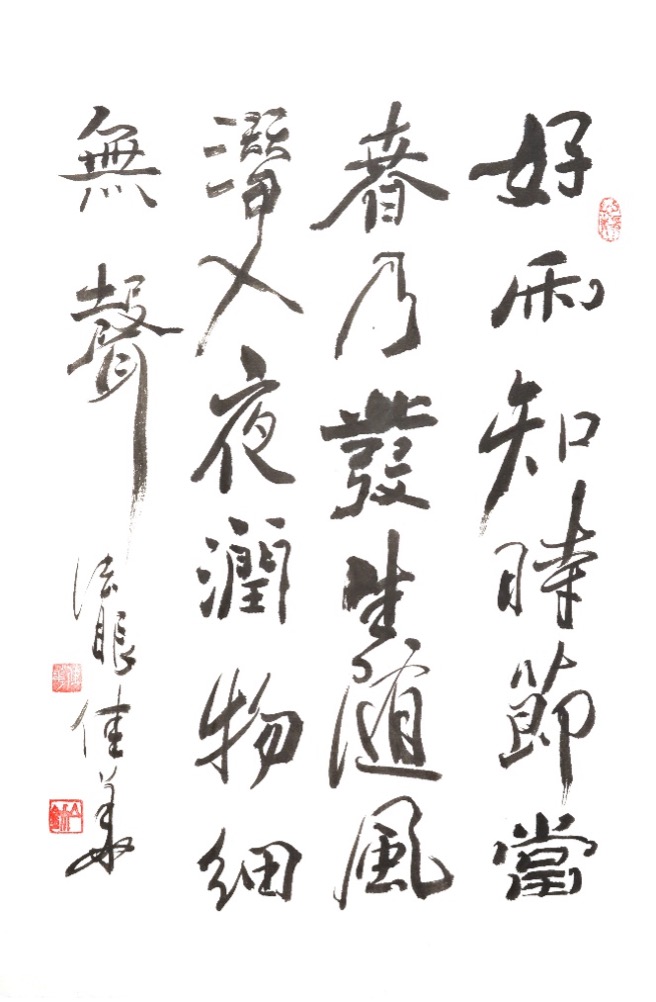 好雨知時節當
春乃發生随風
潛入夜潤物細
無聲
法眼佳